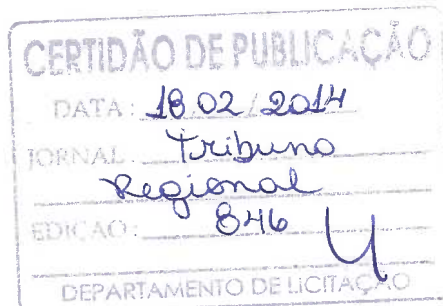 CERTIDÃO DE PUBLICAÇÃO
DATA: 18 02 / 2014
JORNAL: Tribuna
Regional
EDIÇÃO: 846
DEPARTAMENTO DE LICITAÇÃO